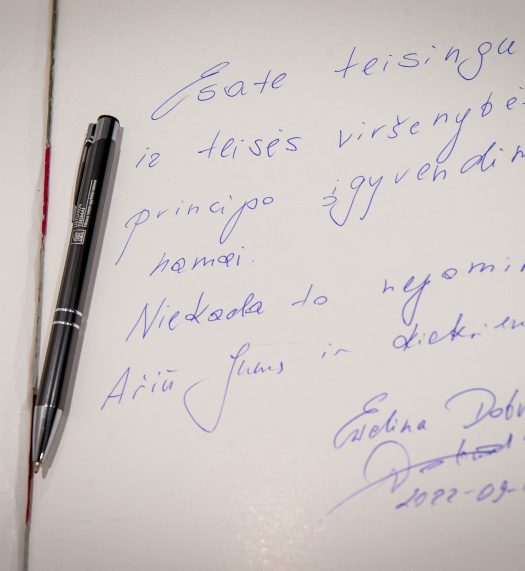 Esate teisingu
ir teisės viršenybė
principo įgyvendin
namai.
Niekada to nepamir
Ačiū Jums ir kiekvien
Evelina Dobr
2022-09-